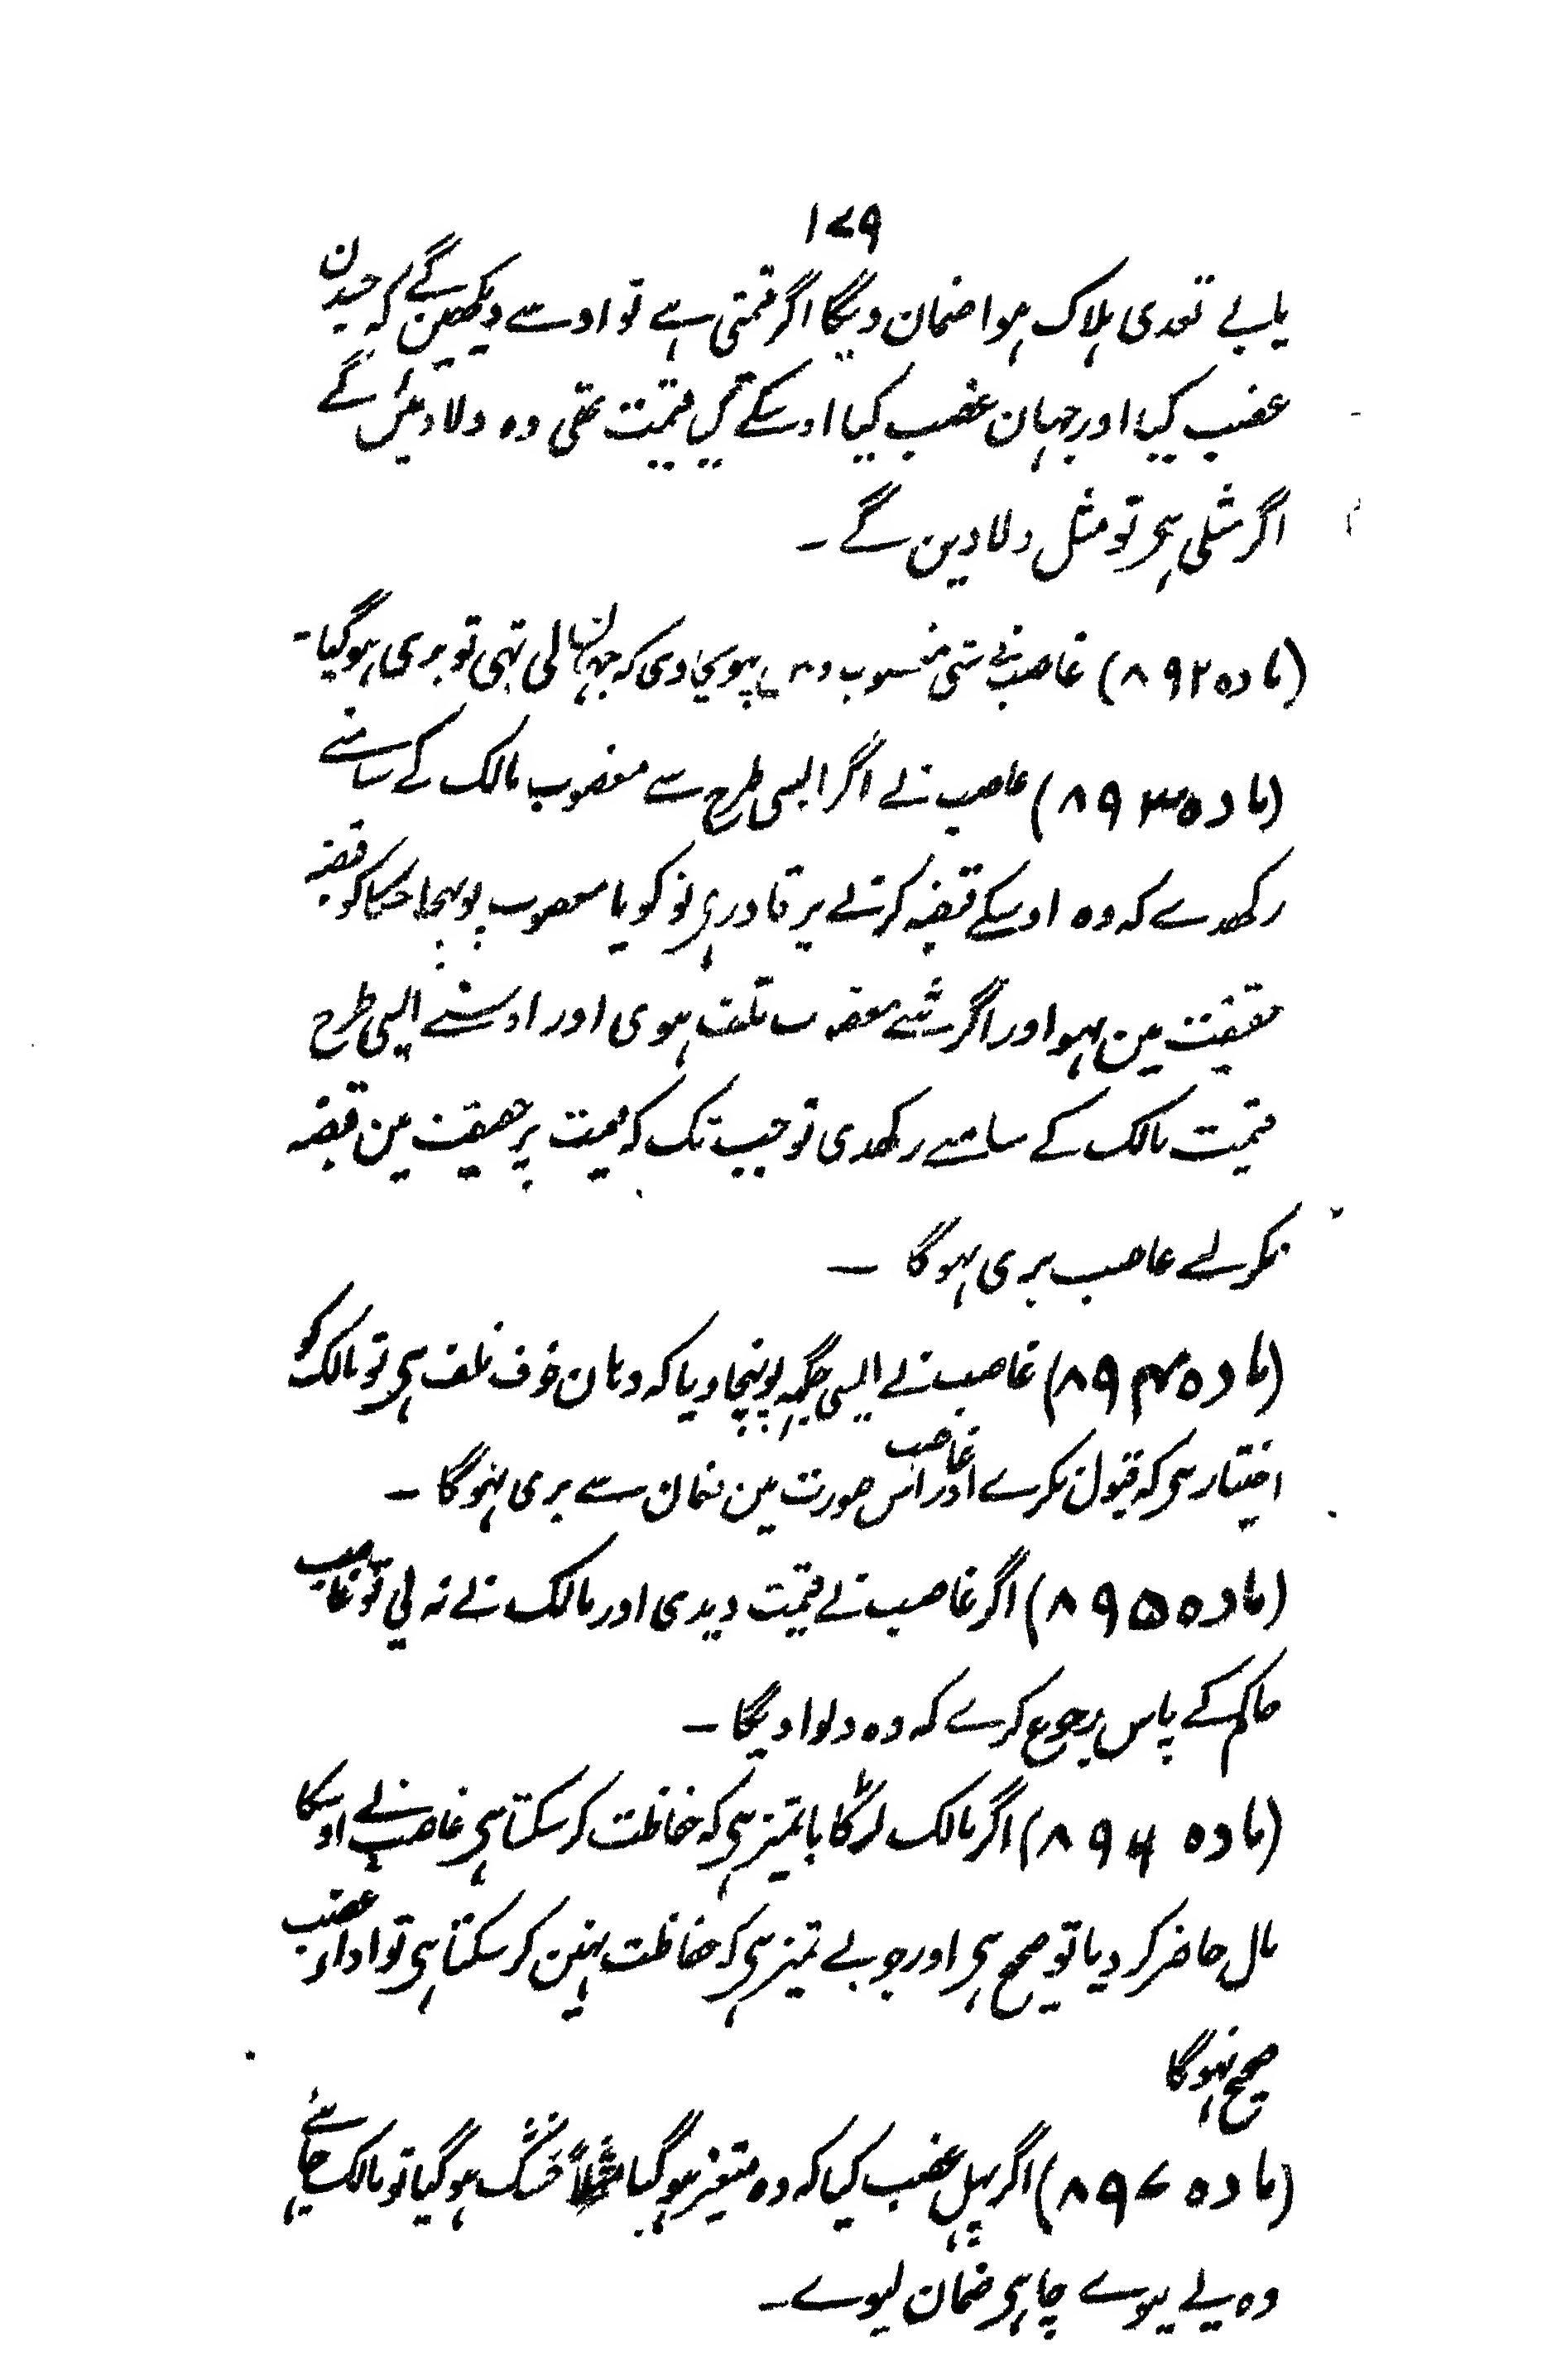 ۱۷۹
یا بے تعدی ہلاک ہوا ضمان دیگا اگر قیمتی ہے تو اوسے دیکھین گے کہ جیدن
غضب کیا اور جہان غضب کیا اوسکے قیمت تھی وہ دلادیں گے
اگر مثلی ہی تو مثل دلادین گے ۔
(مادہ ۸۹۲) غاصب نے شی مغصوب وہیں پہونچا دی کہ جہان لی تہی تو بری ہوگیا ۔
(مادہ ۸۹۳) غاصب نے اگر ایسی طرح سے مغصوب مالک کے سامنے
رکھدے کہ وہ اوسکے قبضہ کرنے پر قادر ہی تو گویا مغصوب پہونچا حکما گو قبضہ
حقیقت مین نہو اور اگر شے مغصوب تلف ہوی اور اوسنے ایسی طرح
قیمت مالک کے سامنے رکھدی تو جب تک کہ قیمت پر حقیقت مین قبضہ
نکرلے غاصب بری نہوگا ۔
(مادہ ۸۹۴) غاصب نے ایسی جگہہ پہونچا دیا کہ وہان خوف تلف ہی تو مالک کو
اختیار ہی کہ قبول نکرے اور اس صورت مین غاصب ضمان سے بری نہوگا ۔
(مادہ ۸۹۵) اگر غاصب نے قیمت دیدی اور مالک نے نہ لی تو غاصب
حاکم کے پاس رجوع کرے کہ وہ دلوادیگا ۔
(مادہ ۸۹۶) اگر مالک لڑکا باتمیز ہی کہ حفاظت کرسکتا ہی غاصب نے اوسکا
مال حاضر کر دیا تو صحیح ہی اور جو بے تمیز ہی کہ حفاظت نہین کر سکتا ہی تو اداء غضب
صحیح نہوگا
(مادہ ۸۹۷) اگر پہل غضب کیا کہ وہ متغیر ہوگیا مثلاً خشک ہوگیا تو مالک چاہے
وہ لے لیوے چاہی ضمان لیوے ۔